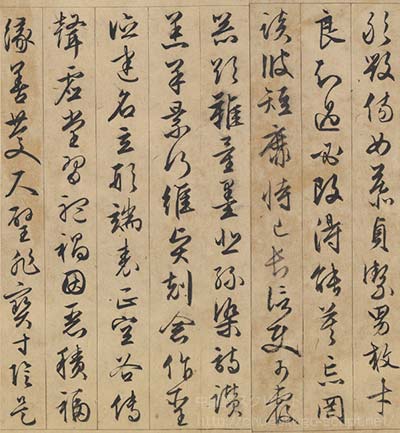 敢毀傷女慕貞絜男效才
良知過必改得能莫忘罔
談彼短靡恃己長信使可覆
器欲難量墨悲絲染詩讚
羔羊景行維賢剋念作聖
德建名立形端表正空谷傳
聲虛堂習聽禍因惡積福
緣善慶尺璧非寶寸陰是